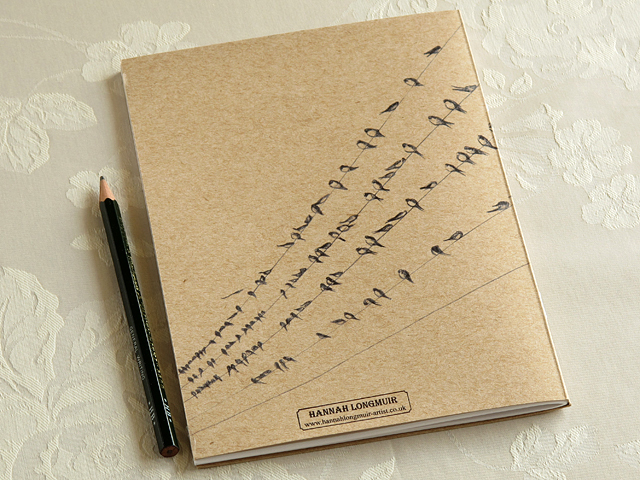 HANNAH LONGMUIR
www.hannahlongmuir-artist.co.uk